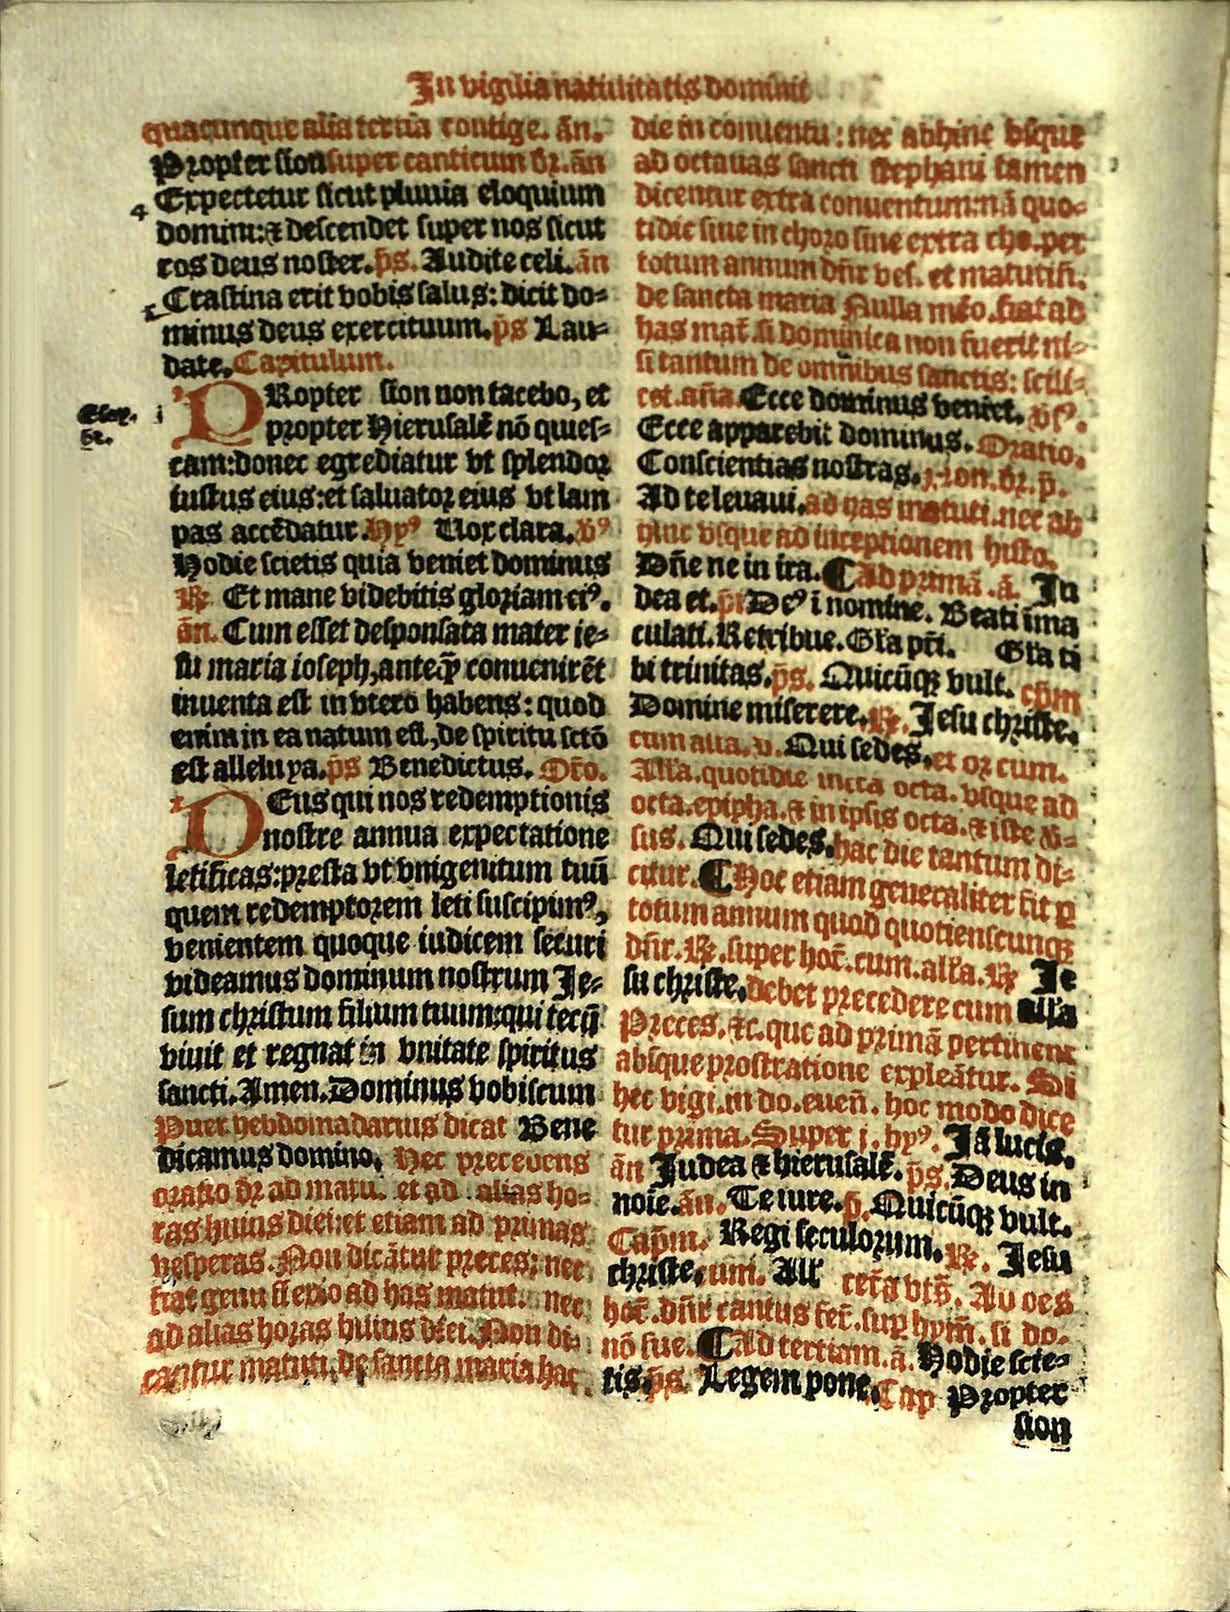 In vigilia natiuitatis domini
quacunque alia tertia contige. añ.
Propter sion super canticum dr̄. añ
Expectetur sicut pluuia eloquium
domini: & descendet super nos sicut
ros deus noster. p̄s. Audite celi. añ
Crastina erit vobis salus: dicit do-
minus deus exercituum. p̄s Lau-
date. Capitulum.
Esay.
PRopter sion non tacebo, et
propter Hierusalē nō quies-
cam: donec egrediatur vt splendor
iustus eius: et saluator eius vt lam
pas accēdatur. Hyꝰ Nox clara. v̄ꝰ
Hodie scietis quia veniet dominus
℟ Et mane videbitis gloriam eiꝰ.
añ. Cum esset desponsata mater ie-
su maria ioseph, anteq̄ conuenirēt
inuenta est in vtero habens: quod
enim in ea natum est, de spiritu sctō
est alleluya. p̄s Benedictus. Orō.
DEus qui nos redemptionis
nostre annua expectatione
letificas: presta vt vnigenitum tuū
quem redemptorem leti suscipimꝰ,
venientem quoque iudicem securi
videamus dominum nostrum Je-
sum christum filium tuum: qui tecū
viuit et regnat in vnitate spiritus
sancti. Amen. Dominus vobiscum
Puer hebdomadarius dicat Bene
dicamus domino. Hec precedens
oratio dr̄ ad matu. et ad alias ho-
ras huius diei: et etiam ad primas
vesperas. Non dicātur preces: nec
fiat genuflexio ad has matut. nec
ad alias horas huius diei. Non di-
cantur matuti. de sancta maria hac
die in conuentu: nec abhinc vsque
ad octauas sancti stephani tamen
dicentur extra conuentum: nā quo-
tidie siue in choro siue extra cho. per
totum annum dn̄r ves. et matutiñ.
de sancta maria Nulla mēo. fiat ad
has mat̄. si dominica non fuerit ni-
si tantum de omnibus sanctis: scili-
cet. aña. Ecce dominus veniet. v̄sꝰ.
Ecce apparebit dominus. Oratio.
Conscientias nostras. j. non. dr̄. p̄.
Ad te leuaui. ad has matuti. nec ab
hinc vsque ad inceptionem histo.
Dñe ne in ira. ¶ Ad primā. ā. Ju
dea et. p̄s Deꝰ ī nomine. Beati ima
culati. Retribue. Gl̄a pr̄i. Gl̄a ti
bi trinitas. p̄s. Quicūqꝫ vult. cp̄m
Domine miserere. ℟. Jesu christe.
cum alla. v. Qui sedes. et or cum.
Alla. quotidie infra octa. vsque ad
octa. epipha. & in ipsis octa. & iste v̄-
sus. Qui sedes. hac die tantum di-
citur. ¶ Hoc etiam generaliter fit ꝑ
totum annum quod quotienscunqꝫ
dn̄r. ℟. super hoc̄. cum. alla. ℟ Je
su christe, debet precedere cum alla
Preces. &c. que ad primā pertinent
absque prostratione expleātur. Si
hec vigi. in do. eueñ. hoc modo dice
tur prima. Super j. hyꝰ. Jā lucis.
añ Judea & hierusalē. p̄s. Deus in
noīe. añ. Te iure. p̄. Quicūqꝫ vult.
Cap̄m. Regi seculorum. ℟. Jesu
christe, cum. All̄ cet̄a vts̄. Ad oēs
hoc̄. dn̄r cantus fer̄. sup hym̄. si do-
nō fue. ¶ Ad tertiam. ā. Hodie scie-
tis. p̄s. Legem pone. Cap Propter
sion